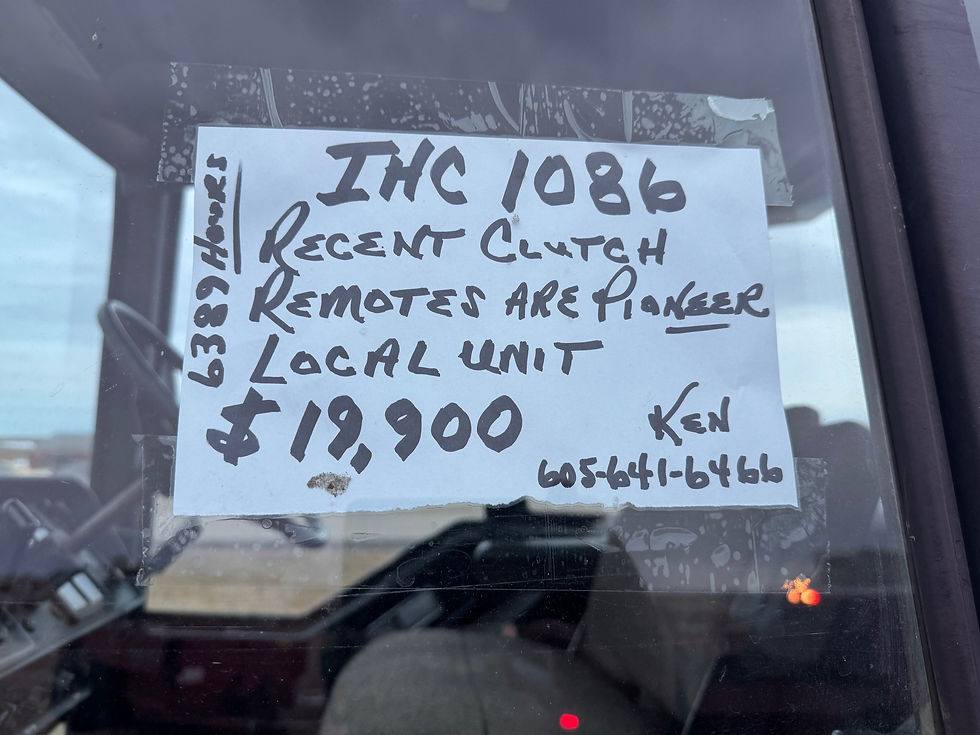 IHC 1086
6389 HOURS
RECENT CLUTCH
REMOTES ARE PIONEER
LOCAL UNIT
$ 19,900
KEN
605-641-6466